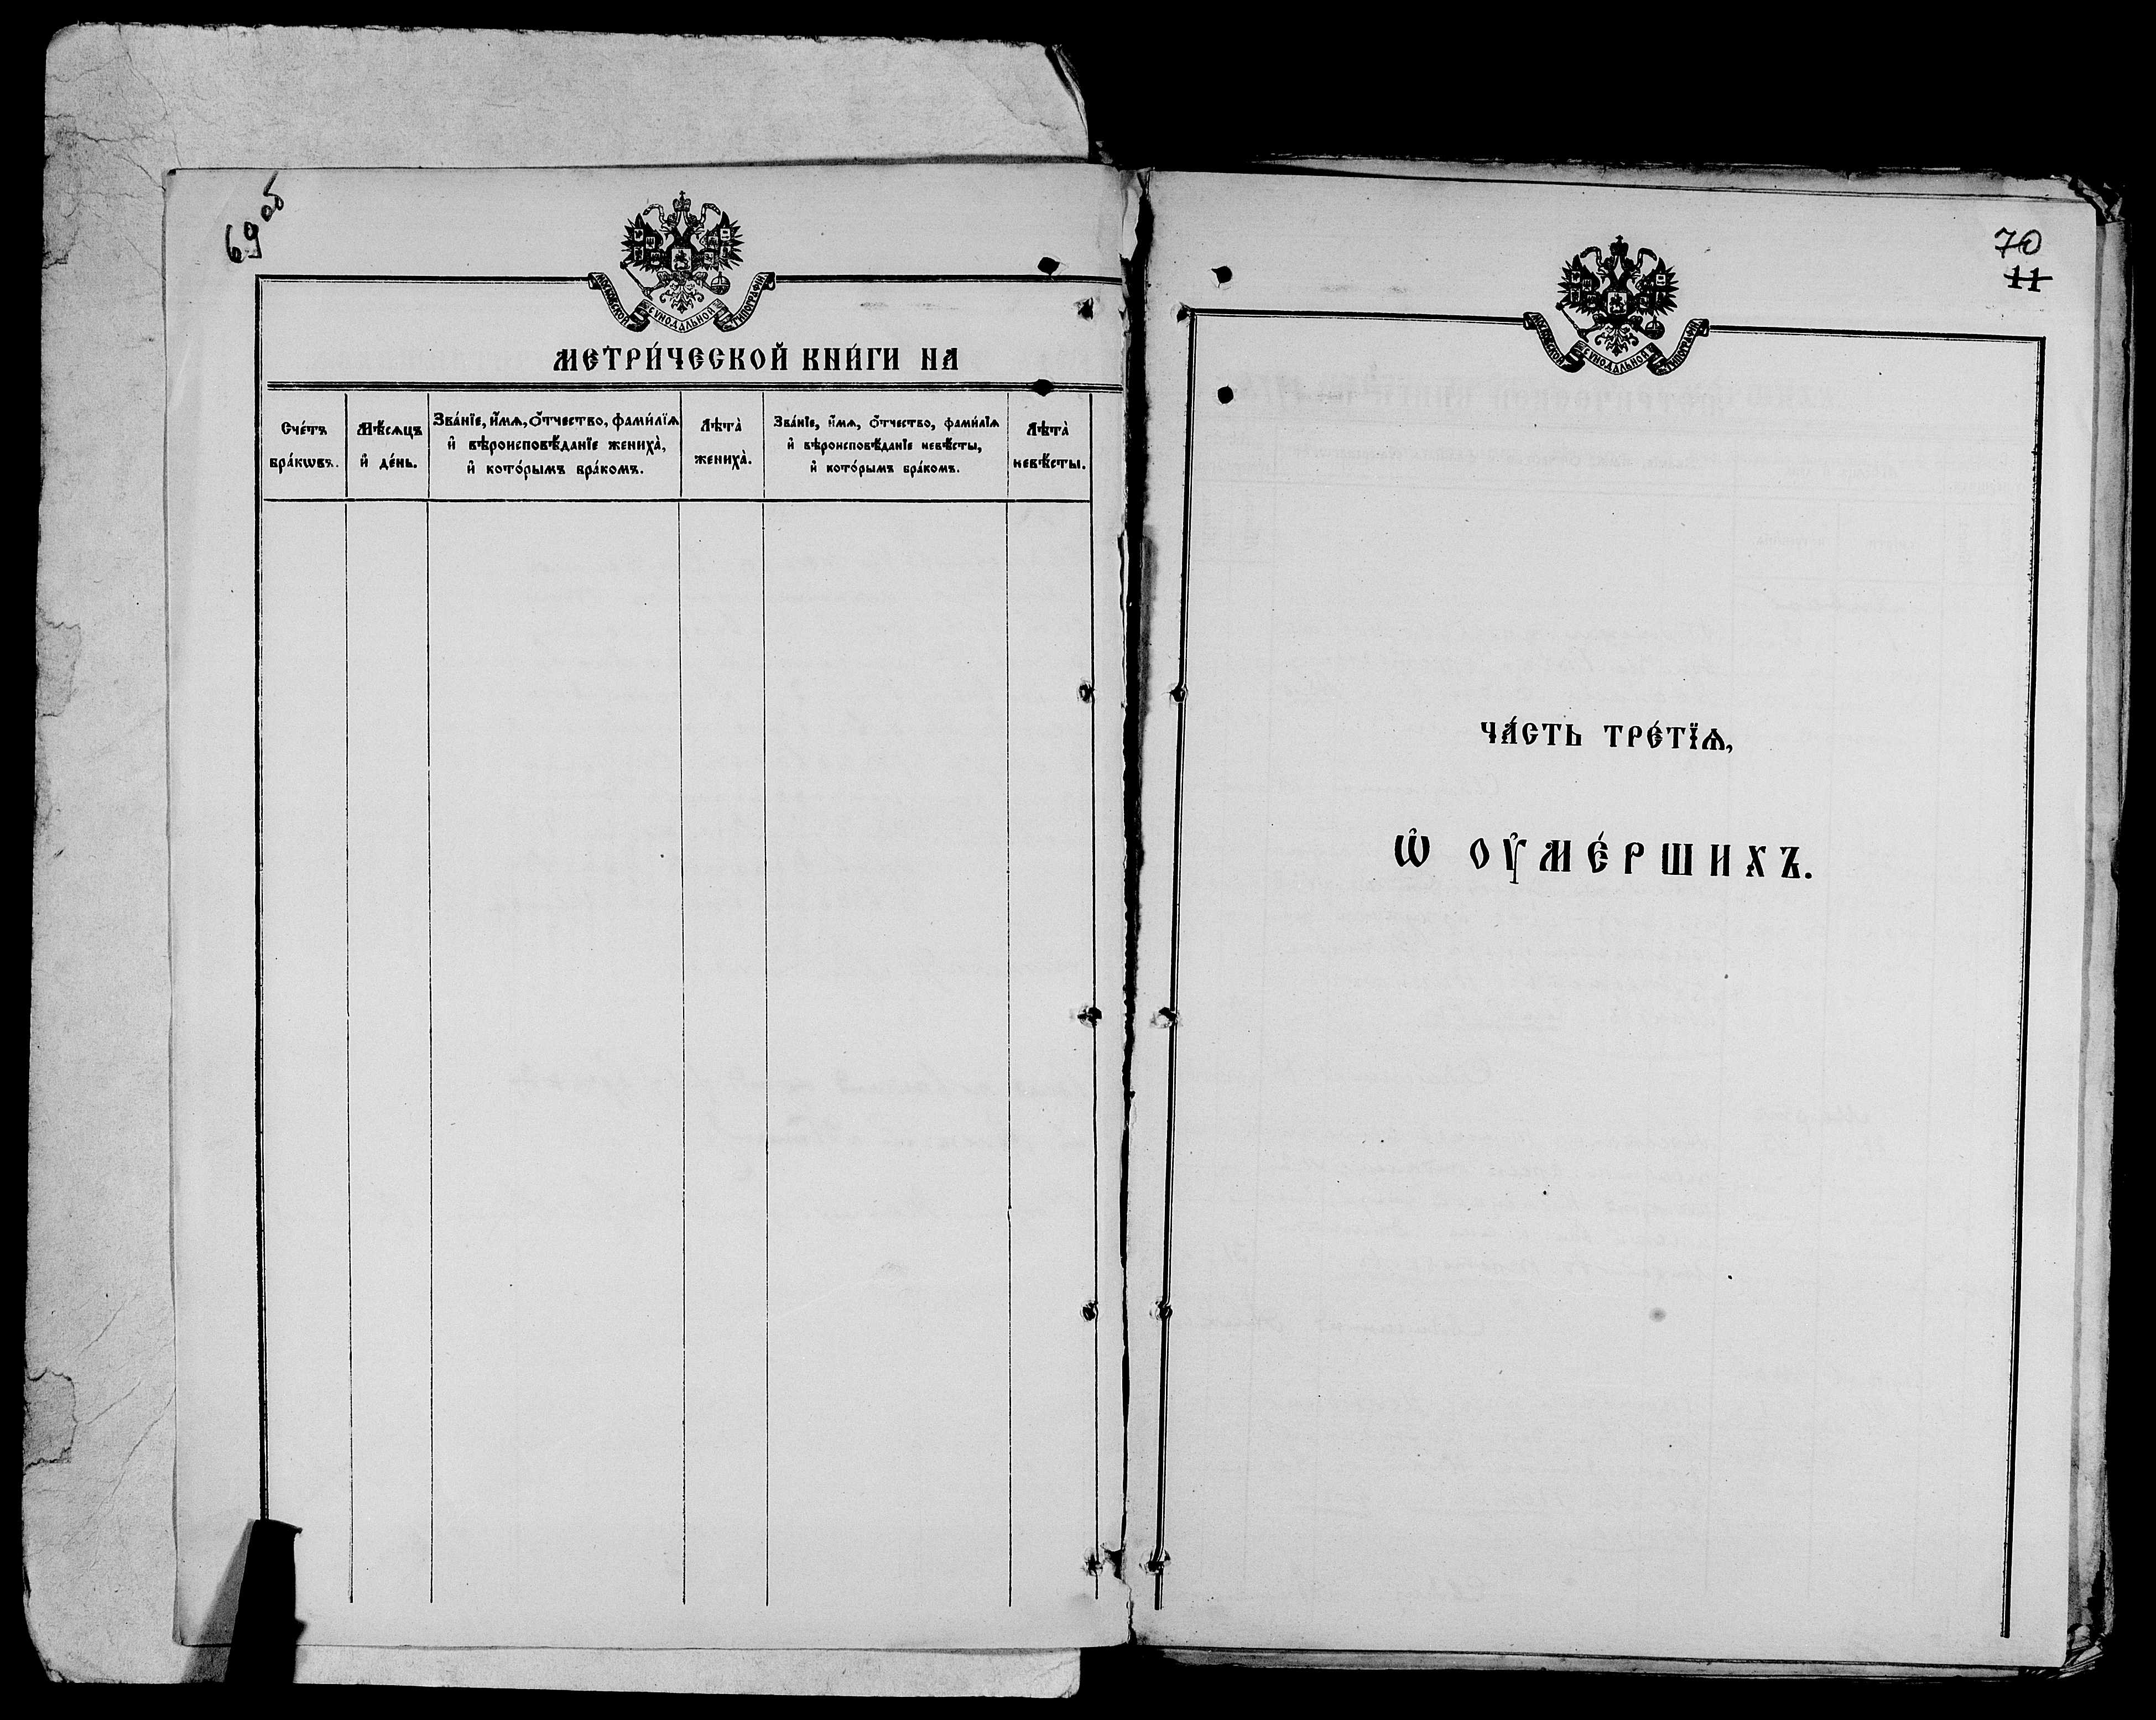 69 об
МОСКОВСКОЙ СѴНОДАЛЬНОЙ ТИПОГРАФІИ
МЕТРИ́ЧЕСКОЙ КНИ́ГИ НА
Сче́тъ
бра́кѡвъ.
Мѣ́сяцъ
и҆ де́нь.
Зва́нїе, и҆́мѧ, ѻ҆́тчество, фами́лїѧ
и҆ вѣроисповѣ́данїе жениха̀,
и҆ кото́рымъ бра́комъ.
Лѣта̀
жениха̀.
Зва́нїе, и҆́мѧ, ѻ҆́тчество, фами́лїѧ
и҆ вѣроисповѣ́данїе невѣ́сты,
и҆ кото́рымъ бра́комъ.
Лѣта̀
невѣ́сты.
70
11
МОСКОВСКОЙ СѴНОДАЛЬНОЙ ТИПОГРАФІИ
ЧА́СТЬ ТРЕ́ТЇѦ,
Ѡ҆ ОУ҆МЕ́РШИХЪ.